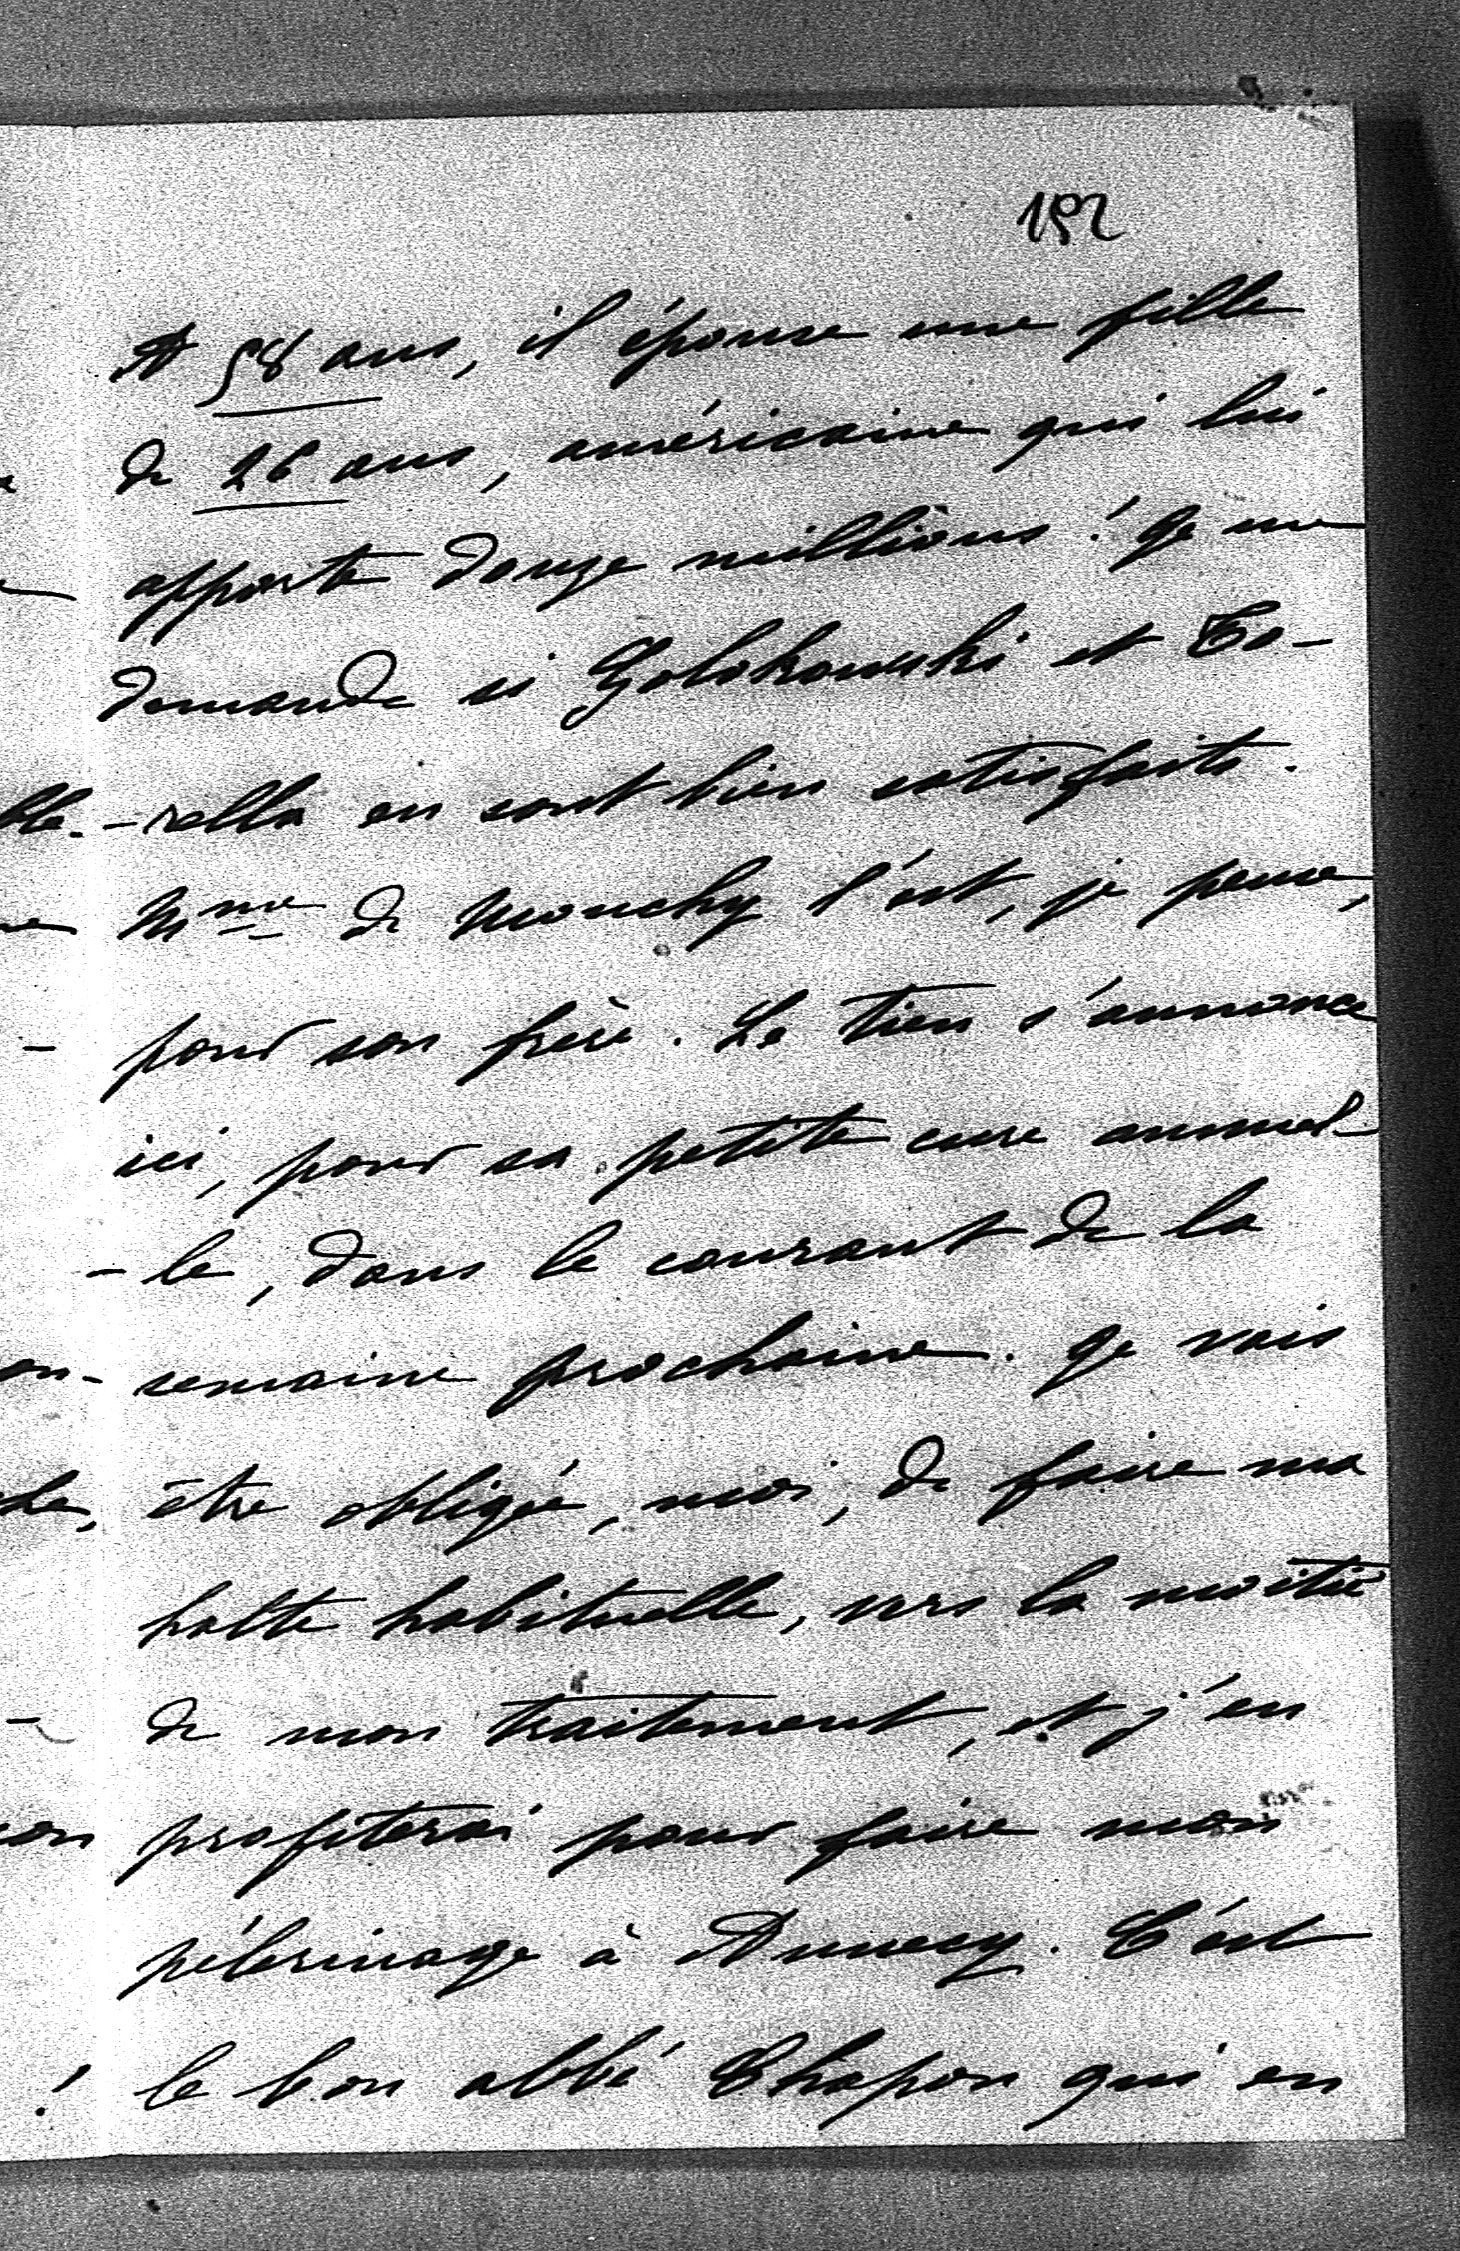 152
A 58 ans, il épouse une fille
de 26 ans, américaine qui lui
apporte douze millions ! Je me
demande si Golokowski et Co-
-rella en sont bien satisfaits.
Mme de Mouchy l'est, je pense,
pour son frère. Le tien s'annonce
ici, pour sa petite cure annuel-
-le, dans le courant de la
semaine prochaine. Je vais
être obligée, moi, de faire ma
halte habituelle, vers la moitié
de mon traitement, et j'en
profiterai pour faire mon
pélerinage à Annecy. C'est
le bon abbé Chapon qui en